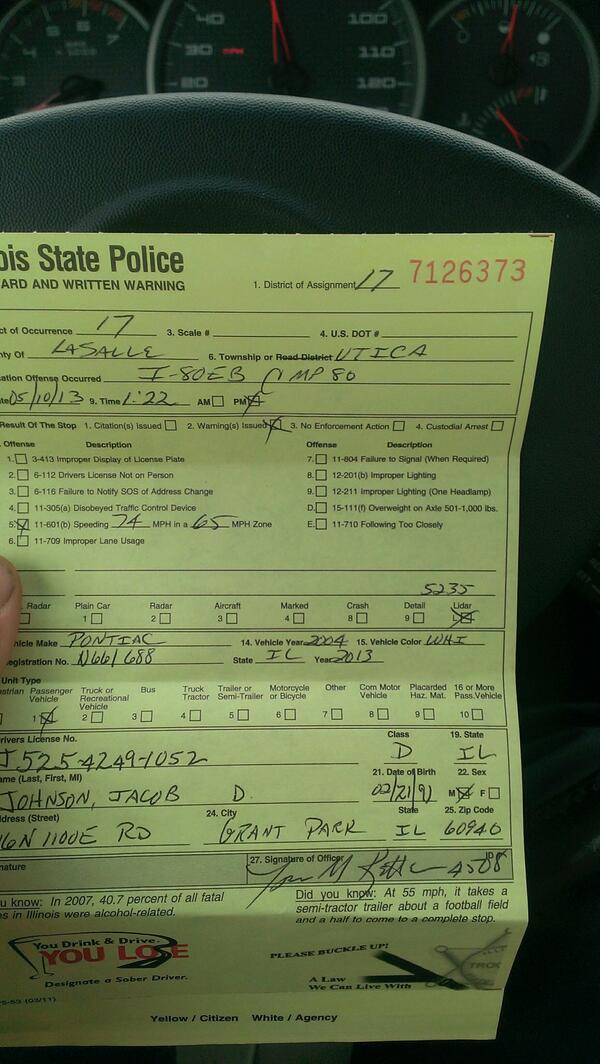 40 100
30 MPH 110
20 120
ois State Police
ARD AND WRITTEN WARNING
1. District of Assignment 17 7126373
ct of Occurrence 17 3. Scale # 4. U.S. DOT #
nty Of LASALLE 6. Township or Road District UTICA
ation Offense Occurred I-80EB MP 80
te 05/10/13 9. Time 1:22 AM PM
Result Of The Stop 1. Citation(s) Issued 2. Warning(s) Issued 3. No Enforcement Action 4. Custodial Arrest
Offense Description Offense Description
1. 3-413 Improper Display of License Plate 7. 11-804 Failure to Signal (When Required)
2. 6-112 Drivers License Not on Person 8. 12-201(b) Improper Lighting
3. 6-116 Failure to Notify SOS of Address Change 9. 12-211 Improper Lighting (One Headlamp)
4. 11-305(a) Disobeyed Traffic Control Device D. 15-111(f) Overweight on Axle 501-1,000 lbs.
5. 11-601(b) Speeding 74 MPH in a 65 MPH Zone E. 11-710 Following Too Closely
6. 11-709 Improper Lane Usage
5235
Radar Plain Car Radar Aircraft Marked Crash Detail Lidar
1 2 3 4 8 9
hicle Make PONTIAC 14. Vehicle Year 2004 15. Vehicle Color WHI
egistration No. N661688 State IL Year 2013
Unit Type
strian Passenger Vehicle Truck or Recreational Vehicle Bus Truck Tractor Trailer or Semi-Trailer Motorcycle or Bicycle Other Com Motor Vehicle Placarded Haz. Mat. 16 or More Pass.Vehicle
1 2 3 4 5 6 7 8 9 10
rivers License No. Class 19. State
J525-4249-1052 D IL
ame (Last, First, MI) 21. Date of Birth 22. Sex
JOHNSON, JACOB D. 02/21/91 M F
ddress (Street) 24. City State 25. Zip Code
6N 1100E RD GRANT PARK IL 60940
nature 27. Signature of Officer
u know: In 2007, 40.7 percent of all fatal
s in Illinois were alcohol-related.
Did you know: At 55 mph, it takes a
semi-tractor trailer about a football field
and a half to come to a complete stop.
You Drink & Drive.
YOU LOSE
Designate a Sober Driver.
PLEASE BUCKLE UP!
A Law
We Can Live With
5-53 (03/11)
Yellow / Citizen White / Agency